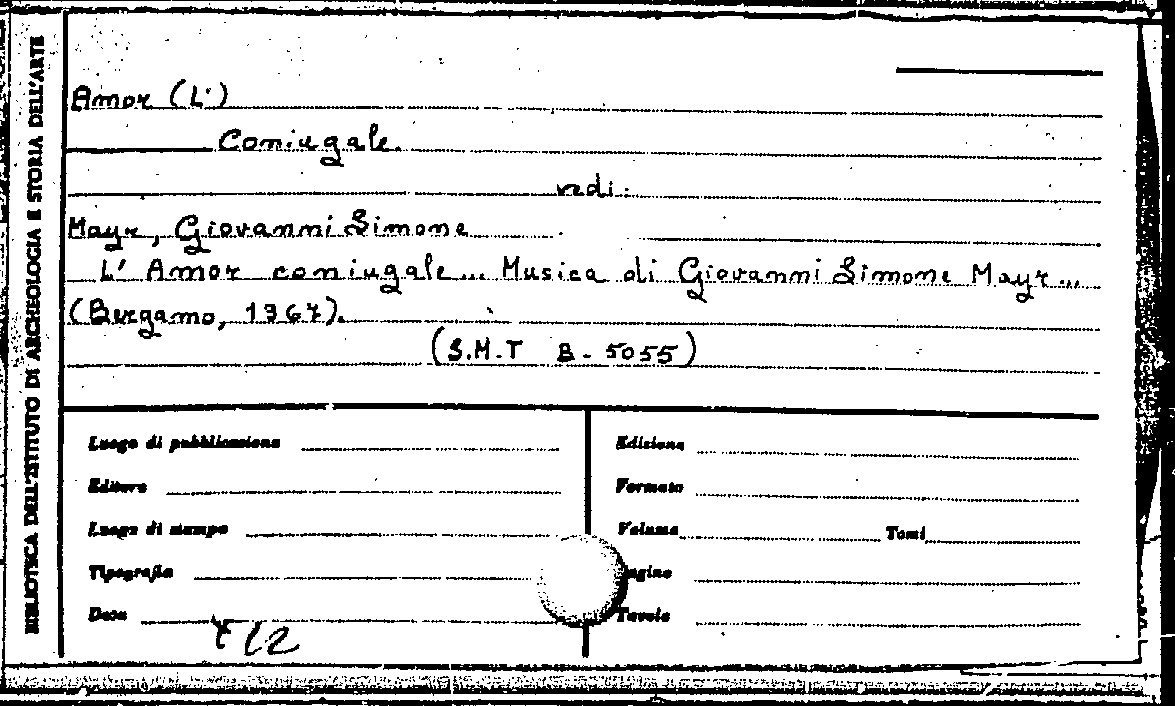 BIBLIOTECA DELL'ISTITUTO DI ARCHEOLOGIA E STORIA DELL'ARTE
Amor (L')
Coniugale.
vedi:
Mayr, Giovanni Simone
L' Amor coniugale... Musica di Giovanni Simone Mayr...
(Bergamo, 1967).
(S.M.T B - 5055)
Luogo di pubblicazione
Editore
Luogo di stampa
Tipografia
Data
Edizione
Formato
Volume Tomi
Tavole